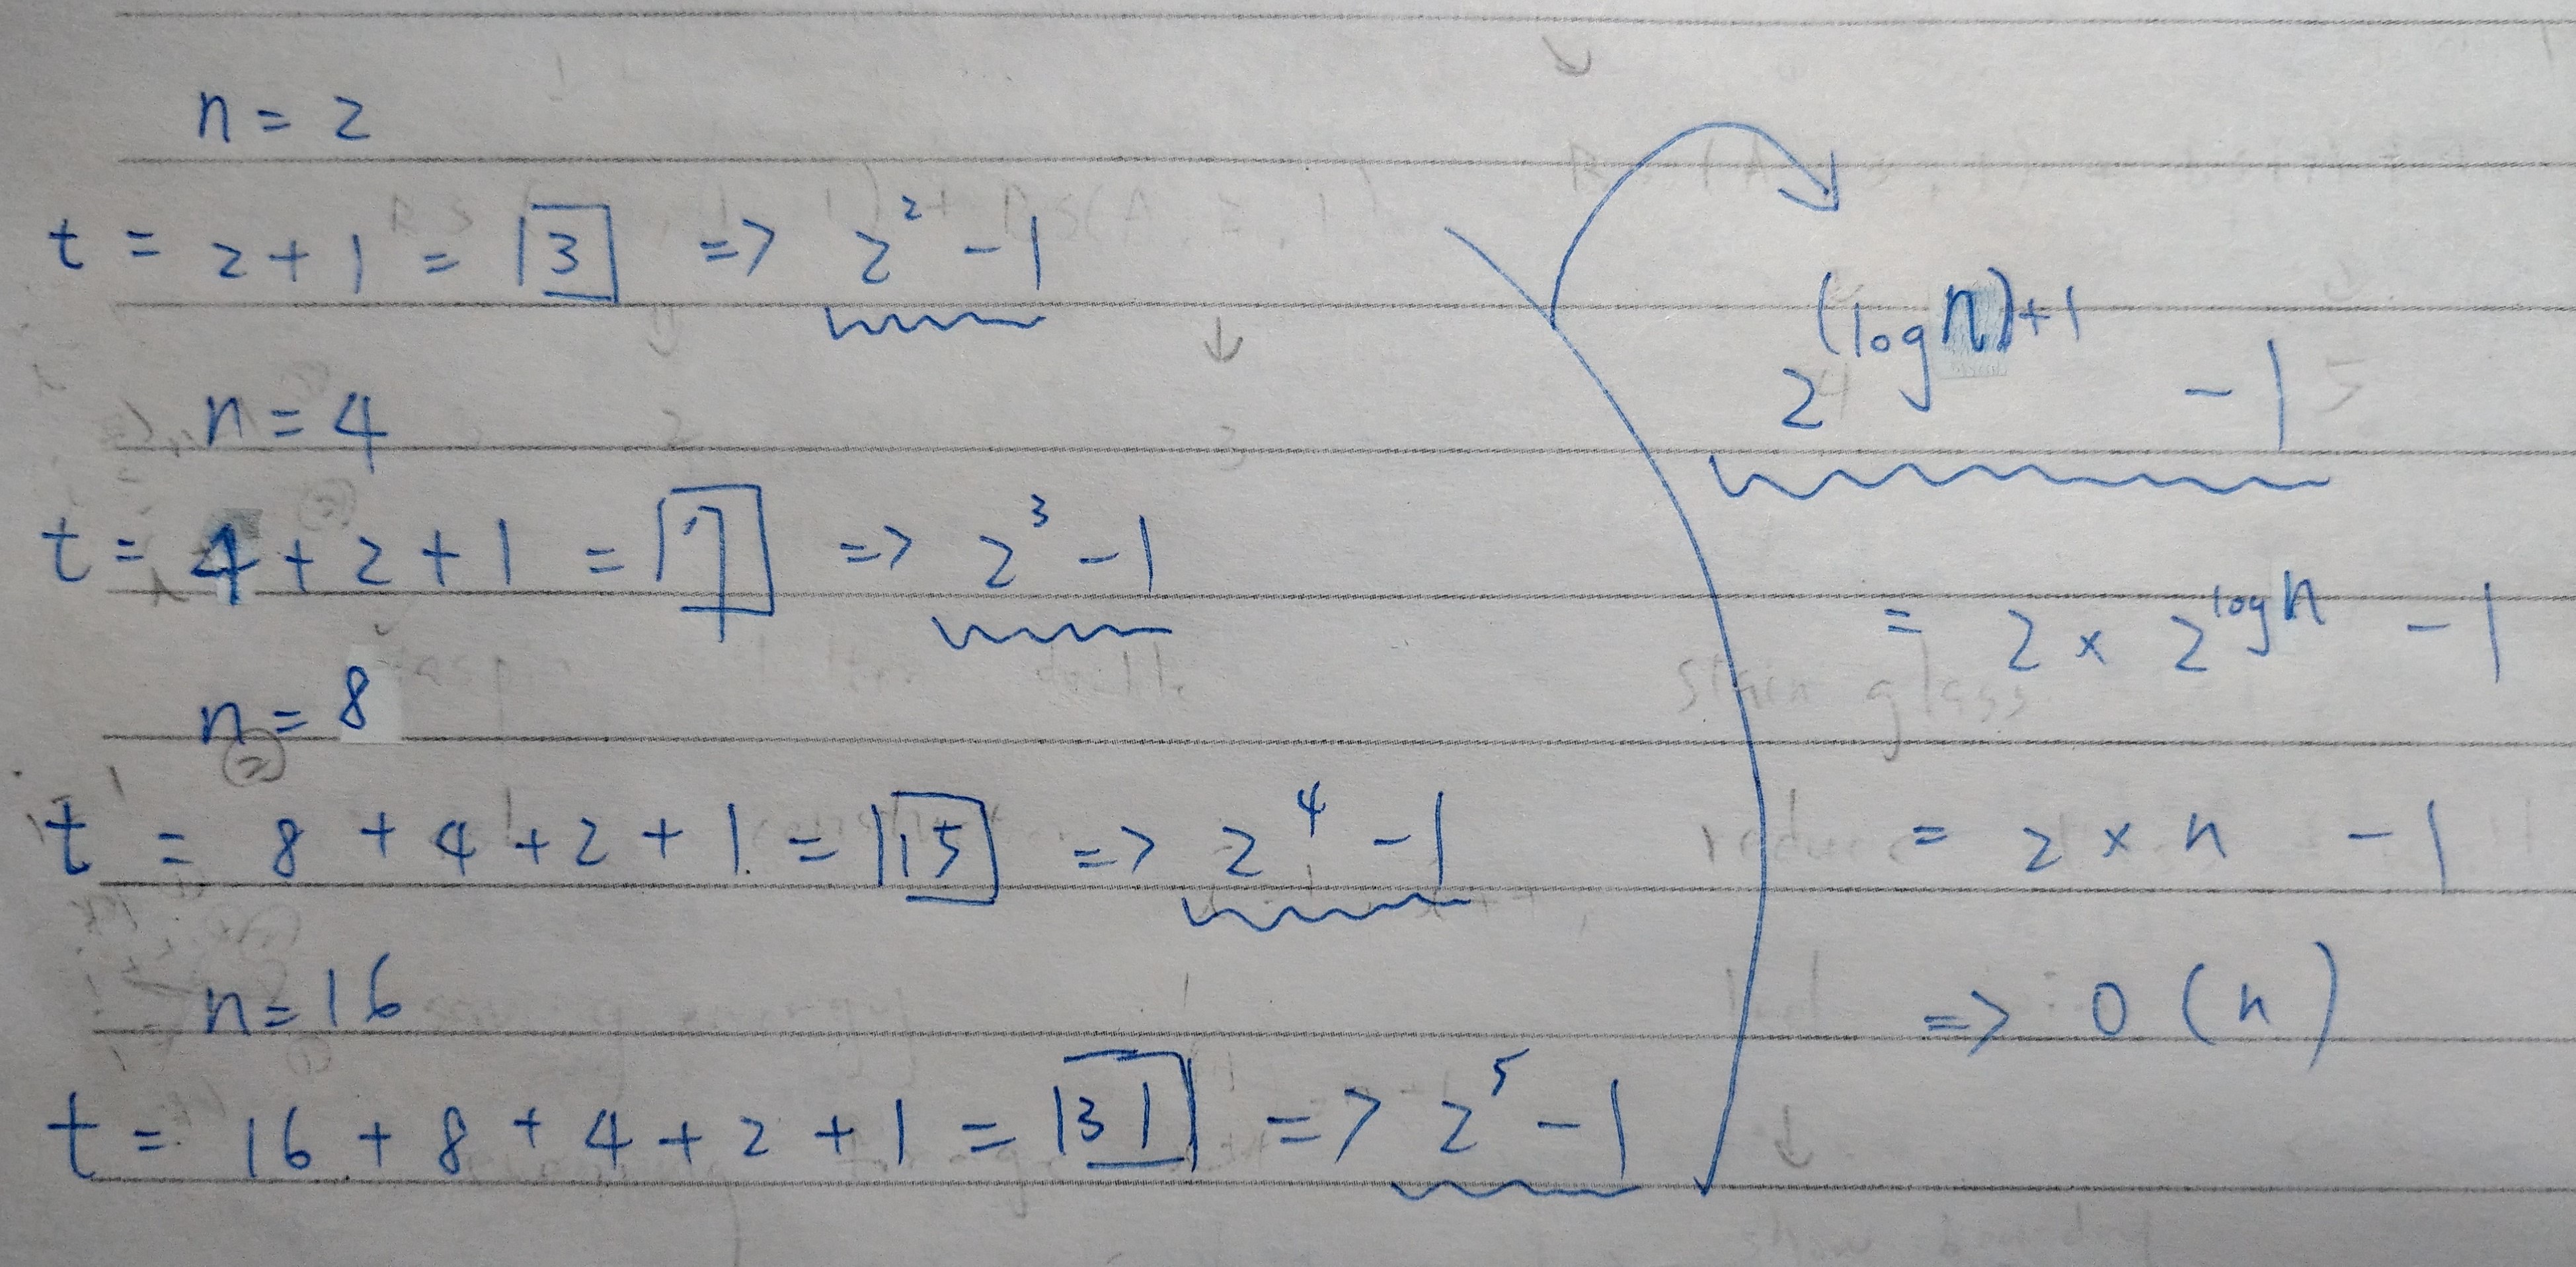 n = 2
t = 2 + 1 = 3 => 2² - 1
n = 4
t = 4 + 2 + 1 = 7 => 2³ - 1
n = 8
t = 8 + 4 + 2 + 1 = 15 => 2⁴ - 1
n = 16
t = 16 + 8 + 4 + 2 + 1 = 31 => 2⁵ - 1
2^(log n)+1 - 1
= 2 × 2^log n - 1
= 2 × n - 1
=> O (n)
stain glass